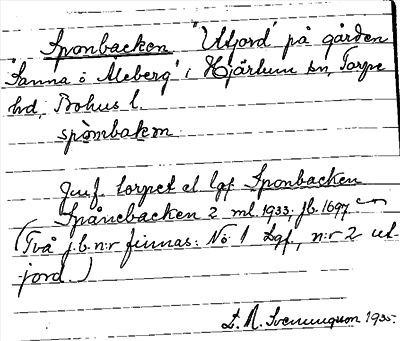 Sponbacken "Utjord" på gården
"Sanna ö Åleberg" i Hjärtum sn, Torpe
hd, Bohus l.
spömbakən
Jmf. torpet el lgf Sponbacken
Spånebacken 2 ml. 1933; jb. 1697
(Två j.b. n:r finnas: No 1 Lgf., n:r 2 ut-
jord.)
L. A. Svenungson 1935.